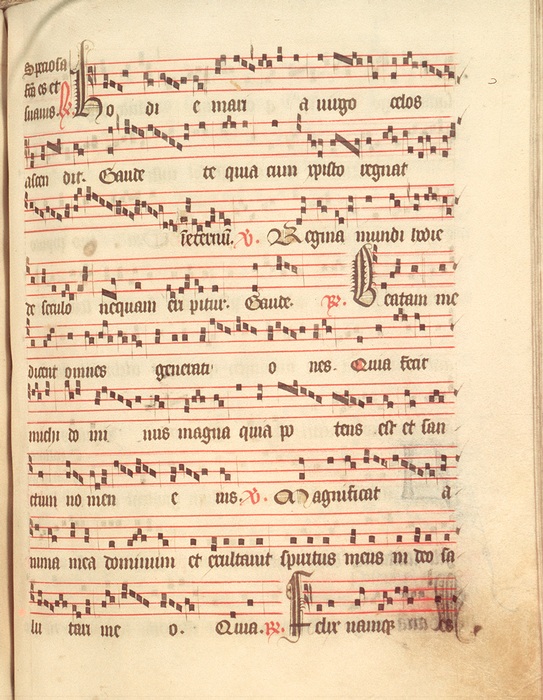 Speciosa
fca es et
suauis. R. Ho di e mari a uirgo celos
ascen dit. Gaude te quia cum xpisto regnat
in eternum. V. Regina mundi hodie
de seculo nequam eri pitur. Gaude. R. Beatam me
dicent omnes generati o nes. Quia fecit
michi do mi nus magna quia po tens est et san
ctum no men e ius. V. Magnificat a
nima mea dominum et exultauit spiritus meus in deo sa
lu tari me o. Quia. R. Felix namque es